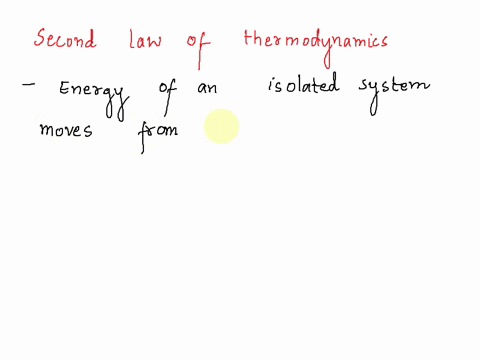 Second law of thermodynamics
- Energy of an isolated system
moves from